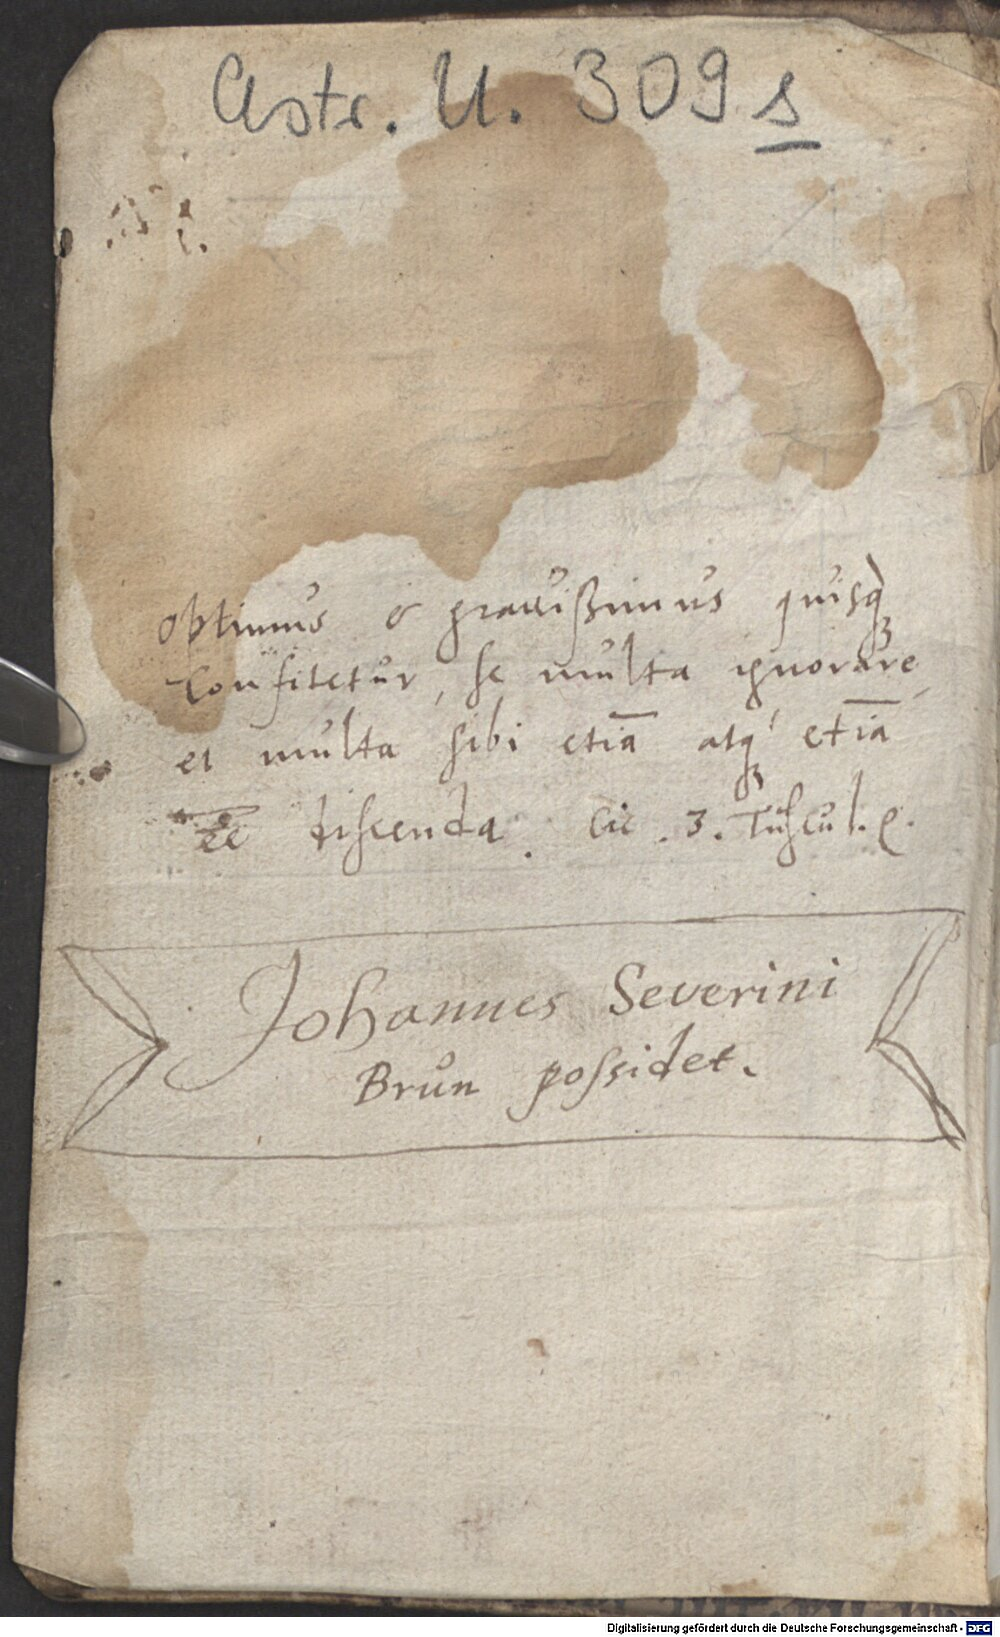 Astr. U. 309 s
optimus & grauißimus quisq̃ꝫ
Confitetur, se multa ignorare,
et multa sibi etiā atqꝫ́ etiā
ēē discenda. Cic. 3. Tuscul. q.
Johannes Severini
Brun poſsidet.
Digitalisierung gefördert durch die Deutsche Forschungsgemeinschaft - DFG